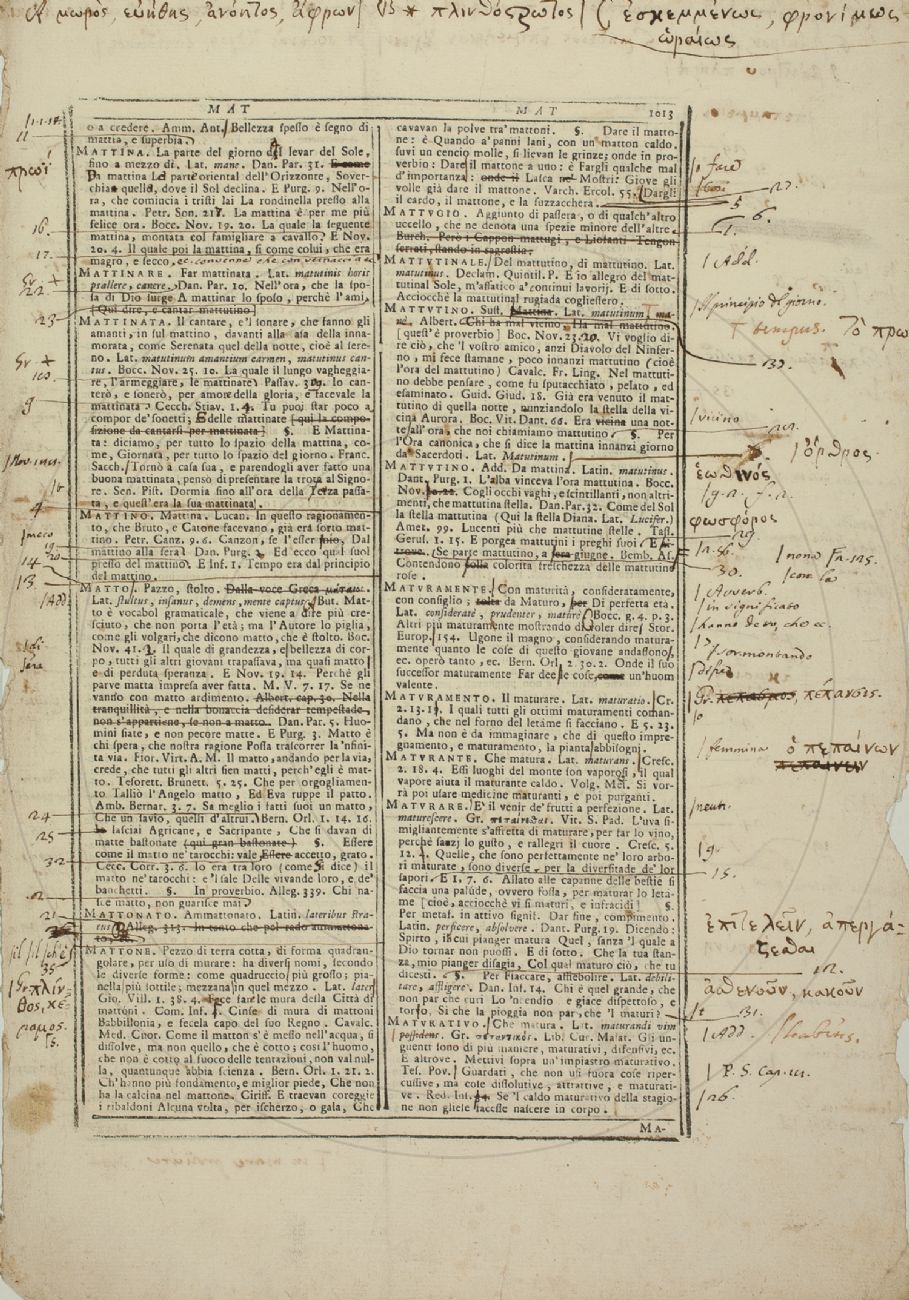 μωρὸς, εὐήθης, ἀνόητος, ἄφρων
πλινθόςρωτος
ἐσκεμμένως, φρονίμως
ὡραίως
MAT
MAT 1013
o a credere. Amm. Ant. Bellezza speſſo è ſegno di
mattia, e ſuperbia.
MATTINA. La parte del giorno dal levar del Sole,
fino a mezzo dì. Lat. mane. Dan. Par. 31.
mattina parte oriental dell'Orizzonte, Sover-
chia quella, dove il Sol declina. E Purg. 9. Nell'o-
ra, che comincia i triſti lai La rondinella preſſo alla
mattina. Petr. Son. La mattina è per me più
felice ora. Bocc. Nov. 19. 20. La quale la ſeguente
mattina, montata col famigliare a cavallo. E Nov.
20. 4. Il quale poi la mattina, ſi come colui, che era
magro, e ſecco,
MATTINARE. Far mattinata. Lat. matutinis horis
pſallere, canere. Dan. Par. 10. Nell'ora, che la ſpo-
ſa di Dio ſurge A mattinar lo ſpoſo, perchè l'ami.
[Qui dire, e cantar mattutino]
MATTINATA. Il cantare, e'l ſonare, che fanno gli
amanti, in ſul mattino, davanti alla caſa della inna-
morata, come Serenata quel della notte, cioè al ſere-
no. Lat. matutinum amantium carmen, matutinus can-
tus. Bocc. Nov. 25. 10. La quale il lungo vagheggia-
re, l'armeggiare, le mattinate. Paſſav. Io can-
terò, e ſonerò, per amore della gloria, e facevale la
mattinata. Cecch. Stiav. 1. 4. Tu puoi ſtar poco a
compor de' ſonetti, E delle mattinate [qui la compo-
ſizione da cantarſi per mattinata] §. E Mattina-
ta: diciamo, per tutto lo ſpazio della mattina, co-
me, Giornata, per tutto lo ſpazio del giorno. Franc.
Sacch. Tornò a caſa ſua, e parendogli aver fatto una
buona mattinata, penſò di preſentare la trota al Signo-
re. Sen. Piſt. Dormia fino all'ora della Terza paſſa-
ta, e queſt'era la ſua mattinata.
MATTINO. Mattina. Lucan. In queſto ragionamen-
to, che Bruto, e Catone facevano, già era ſorto mat-
tino. Petr. Canz. 9. 6. Canzon, ſe l'eſſer Dal
mattino alla ſera. Dan. Purg. 2. Ed ecco qual ſuol
preſſo del mattino. E Inf. 1. Tempo era dal principio
del mattino.
MATTO. Pazzo, ſtolto. Dalla voce Greca μάταιος.
Lat. ſtultus, inſanus, demens, mente captus. But. Mat-
to è vocabol gramaticale, che viene a dire più cre-
ſciuto, che non porta l'età; ma l'Autore lo piglia,
come gli volgari, che dicono matto, che è ſtolto. Boc.
Nov. 41. Il quale di grandezza, e bellezza di cor-
po, tutti gli altri giovani trapaſſava, ma quaſi matto
e di perduta ſperanza. E Nov. 19. 14. Perchè gli
parve matta impreſa aver fatta. M. V. 7. 17. Se ne
vanſo con matto ardimento. Albert. cap. 30. Nella
tranquillità, e nella bonaccia deſiderar tempeſtade,
non s'appartiene, ſe non a matto. Dan. Par. 5. Huo-
mini ſiate, e non pecore matte. E Purg. 3. Matto è
chi ſpera, che noſtra ragione Poſſa traſcorrer la 'nfini-
ta via. Fior. Virt. A. M. Il matto, andando per la via,
crede, che tutti gli altri ſien matti, perch'egli è mat-
to. Teſorett. Brunett. 5. 25. Che per orgogliamen-
to Tallìo l'Angelo matto, Ed Eva ruppe il patto.
Amb. Bernar. 3. 7. Sa meglio i fatti ſuoi un matto,
Che un ſavio, quelli d'altrui. Bern. Orl. 1. 14. 16.
laſciai Agricane, e Sacripante, Che ſi davan di
matte baſtonate (qui gran baſtonate) §. Eſſere
come il matto ne' tarocchi: vale Eſſere accetto, grato.
Cecc. Corr. 3. 6. Io era tra loro (come ſi dice) il
matto ne' tarocchi: e 'l ſale Delle vivande loro, e de'
banchetti. §. In proverbio. Alleg. 339. Chi na-
ſce matto, non guariſce mai.
MATTONATO. Ammattonato. Latin. lateribus ſtra-
tus. Alleg. 313. In tanto che pel rado ammattona-
MATTONE. Pezzo di terra cotta, di forma quadran-
golare, per uſo di murare: ha diverſi nomi, ſecondo
le diverſe forme: come quadruccio, più groſſo; pia-
nella, più ſottile; mezzana, in quel mezzo. Lat. later
Gio. Vill. 1. 38. 4. Fece fare le mura della Città di
mattoni. Com. Inf. Cinſe di mura di mattoni
Babbillonia, e fecela capo del ſuo Regno. Cavalc.
Med. Cuor. Come il matton s'è meſſo nell'acqua, ſi
diſſolve, ma non quello, che è cotto; così l'huomo,
che non è cotto al fuoco delle tentazioni, non val nul-
la, quantunque abbia ſcienza. Bern. Orl. 1. 21. 2.
Ch'hanno più fondamento, e miglior piede, Che non
ha la calcina nel mattone. Ciriff. E traevan coreggie
i ribaldoni Alcuna volta, per iſcherzo, o gala, Che
cavavan la polve tra' mattoni. §. Dare il matto-
ne: è Quando a' panni lani, con un matton caldo,
ſuvi un cencio molle, ſi lievan le grinze; onde in pro-
verbio: Dare il mattone a uno: è Fargli qualche mal
d'importanza: onde il Laſca nel Moſtri: Giove gli
volle già dare il mattone. Varch. Ercol. 55. Dargli
il cardo, il mattone, e la ſuzzacchera.
MATTUGIO. Aggiunto di paſſera, o di qualch'altro
uccello, che ne denota una ſpezie minore dell'altre.
Burch. Però i Cappon mattugi, e Liofanti Tengon
ſerrati, ſtando in ſagreſtia.
MATTUTINALE. Del mattutino, di mattutino. Lat.
matutinus. Declam. Quintil. P. E io allegro del mat-
tutinal Sole, m'affatico a' continui lavorij. E di ſotto.
Acciocchè la mattutinal rugiada coglieſſero.
MATTUTINO. Suſt. Mattina. Lat. matutinum, ma-
ne. Albert. Chi ha mal vicino, Ha mal mattutino.
[queſt'è proverbio] Boc. Nov. 23. 20. Vi voglio di-
re ciò, che 'l voſtro amico, anzi Diavolo del Ninfer-
no, mi fece ſtamane, poco innanzi mattutino (cioè
l'ora del mattutino) Cavalc. Fr. Ling. Nel mattuti-
no debbe penſare, come fu ſputacchiato, pelato, ed
eſaminato. Guid. Giud. 18. Già era venuto il mat-
tutino di quella notte, nunziandolo la ſtella della vi-
cina Aurora. Boc. Vit. Dant. 66. Era vicina una not-
te all'ora, che noi chiamiamo mattutino. §. Per
l'Ora canonica, che ſi dice la mattina innanzi giorno
da' Sacerdoti. Lat. Matutinum.
MATTUTINO. Add. Da mattina. Latin. matutinus.
Dant. Purg. 1. L'alba vinceva l'ora mattutina. Bocc.
Nov. Cogli occhi vaghi, e ſcintillanti, non altri-
menti, che mattutina ſtella. Dan. Par. 32. Come del Sol
la ſtella mattutina (Qui la ſtella Diana. Lat. Lucifer.)
Amet. 99. Lucenti più che mattutine ſtelle. Taſſ.
Geruſ. 1. 15. E porgea mattutini i preghi ſuoi.
(Se parte mattutino, a ſera giugne. Bemb. Aſ.
Contendono colorita freſchezza delle mattutine
roſe.
MATURAMENTE. Con maturità, conſideratamente,
con conſiglio; da Maturo, per Di perfetta età.
Lat. conſideratè, prudenter, maturè. Bocc. g. 4. p. 3.
Altri più maturamente moſtrando di voler dire. Stor.
Europ. 154. Ugone il magno, conſiderando matura-
mente quanto le coſe di queſto giovane andaſſono,
ec. operò tanto, ec. Bern. Orl. 2. 30. 2. Onde il ſuo
ſucceſſor maturamente Far dee le coſe, come un'huom
valente.
MATURAMENTO. Il maturare. Lat. maturatio. Cr.
2. 13. 17. I quali tutti gli ottimi maturamenti coman-
dano, che nel forno del letáme ſi facciano. E 5. 23.
5. Ma non è da immaginare, che di queſto impre-
gnamento, e maturamento, la pianta abbiſogni.
MATURANTE. Che matura. Lat. maturans. Creſc.
2. 18. 4. Eſſi luoghi del monte ſon vaporoſi, il qual
vapore aiuta il maturante caldo. Volg. Meſ. Si vor-
rà poi uſare medicine maturanti, e poi purganti.
MATURARE. E'l venir de' frutti a perfezione. Lat.
matureſcere. Gr. πεπαίνεσθαι. Vit. S. Pad. L'uva ſi-
migliantemente s'affretta di maturare, per far lo vino,
perchè ſanzj lo guſto, e rallegri il cuore. Creſc. 5.
12. 4. Quelle, che ſono perfettamente ne' loro arbo-
ri maturate, ſono diverſe, per la diverſitade de' lor
ſapori. E 1. 7. 6. Allato alle capanne delle beſtie ſi
faccia una palude, ovvero foſſa, per maturar lo letá-
me [cioè, acciocchè vi ſi maturi, e infracidi] §.
Per metaf. in attivo ſignif. Dar fine, compimento.
Latin. perficere, abſolvere. Dant. Purg. 19. Dicendo:
Spirto, in cui pianger matura Quel, ſanza 'l quale a
Dio tornar non puoſſi. E di ſotto. Che la tua ſtan-
za, mio pianger diſagia, Col qual maturo ciò, che tu
diceſti. §. Per Fiaccare, affiebolire. Lat. debili-
tare, affligere. Dan. Inf. 14. Chi è quel grande, che
non par che curi Lo 'ncendio e giace diſpettoſo, e
torto, Sì che la pioggia non par, che 'l maturi?
MATURATIVO. Che matura. Lat. maturandi vim
poſſidens. Gr. πεπαντικός. Lib. Cur. Malat. Gli un-
guenti ſono di più maniere, maturativi, difenſivi, ec.
E altrove. Mettivi ſopra un'impiaſtro maturativo.
Teſ. Pov. Guardati, che non uſi fuora coſe riper-
cuſſive, ma coſe diſſolutive, attrattive, e maturati-
ve. Red. Inſ. Se 'l caldo maturativo della ſtagio-
ne non gliele faceſſe naſcere in corpo.
MA-
11
πρωΐ
16.
17.
22
23
9
4
14
13
24
25
32
21
35
πλίν-
θος, κέ-
ραμος.
27.
5
6.
Add.
principio di giorno.
tempus.
30.
vicino
ὁ ὄρθρος.
ἑωθινός
φωσφόρος
30.
Avverb.
in significato
sormontando
πέπανσις.
femmina ὁ πεπαίνων
neut.
9.
15.
ἐπιτελεῖν, ἀπεργά-
ζεσθαι
ἀσθενοῦν, κακοῦν
31.
Add.
P. S. Cap.
26.